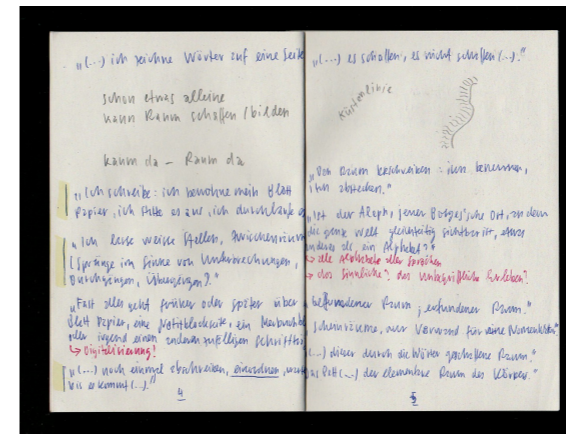 „(...) ich zeichne Wörter auf eine Seite
schon etwas alleine
kann Raum schaffen / bilden
kaum da – Raum da
„Ich schreibe: ich bewohne mein Blatt
Papier, ich statte es aus, ich durchlaufe es
„Ich lasse weisse Stellen, Zwischenräume
(Sprünge im Sinne von Unterbrechungen,
Durchgängen, Übergängen)."
„Fast alles geht früher oder später über
Blatt Papier, eine Notizbuchseite, ein
oder irgend einen anderen zufälligen Schriftträ
↳ Digitalisierung?
„(...) noch einmal abschreiben, einordnen,
bis er kommt (...)."
4
„(...) es schaffen, es nicht schaffen (...)."
Küstenlinie
„Den Raum beschreiben: ihn benennen,
ihn abstecken."
„Ist der Aleph, jener Borges'sche Ort, an dem
die ganze Welt gleichzeitig sichtbar ist, etwas
anderes als, ein Alphabet?"
↳ alle Alphabete aller Sprachen
↳ das Sinnliche? das Unbegriffliche Erleben?
„befundener Raum, erfundener Raum."
Scheinräume, nur Vorwand für eine Nomenklatur"
(...) dieser durch die Wörter geschaffene Raum."
das Bett (...) der elementare Raum des Körpers."
5